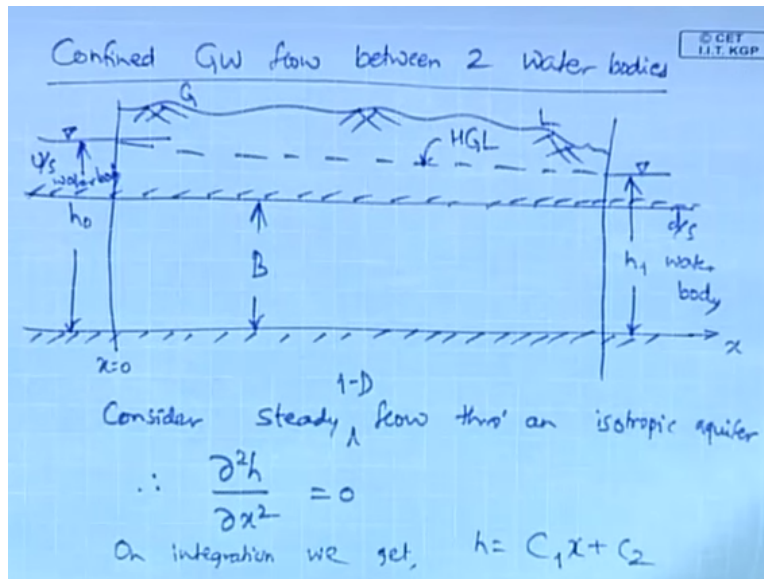 Confined GW flow between 2 water bodies
© CET
I.I.T. KGP
G
L
HGL
u/s
water body
h₀
B
d/s
h₁ water
body
x=0
x
1-D
Consider steady ∧ flow thro' an isotropic aquifer
∴ ∂²h/∂x² = 0
On integration we get, h = C₁x + C₂